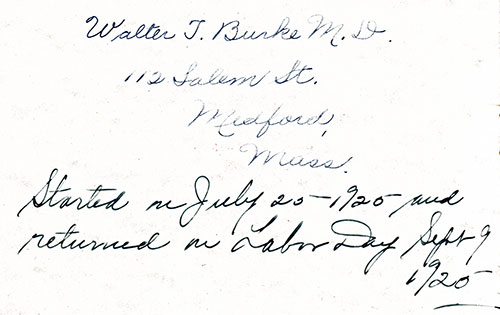 Walter T. Burke M.D.
112 Salem St.
Medford,
Mass.
Started on July 25-1925 and
returned on Labor Day Sept 9
1925